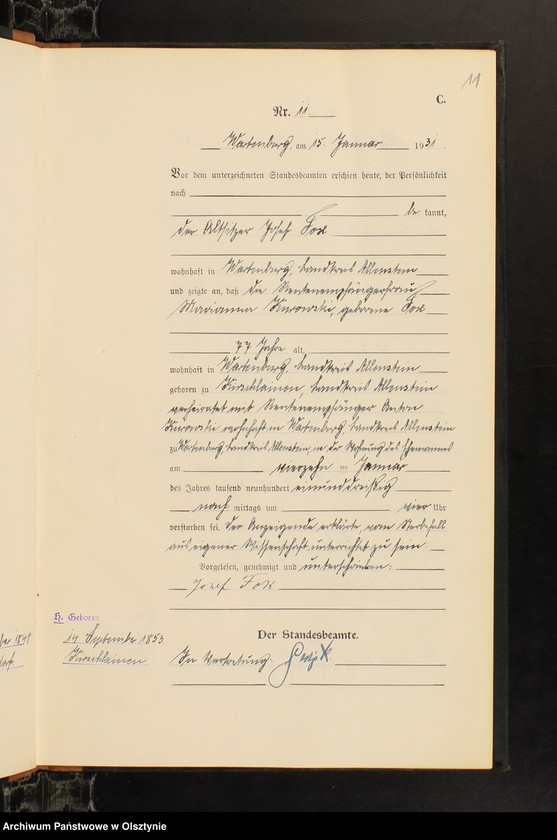 11
C.
Nr. 11
Wartenburg, am 15. Januar 1931
Vor dem unterzeichneten Standesbeamten erschien heute, der Persönlichkeit
nach
be kannt,
der Altsitzer Josef Fox
wohnhaft in Wartenburg, Landkreis Allenstein
und zeigte an, daß die Rentenempfängerfrau
Marianna Kurowski, geborene Fox
77 Jahre alt,
wohnhaft in Wartenburg, Landkreis Allenstein
geboren zu Kirschlainen, Landkreis Allenstein
verheiratet mit Rentenempfänger Anton
Kurowski wohnhaft in Wartenburg, Landkreis Allenstein
zu Wartenburg, Landkreis Allenstein, in der Wohnung des Ehemannes
am vierzehn ten Januar
des Jahres tausend neunhundert einunddreißig
nach mittags um vier Uhr
verstorben sei. Der Anzeigende erklärte, vom Sterbefall
aus eigener Wissenschaft unterrichtet zu sein.
Vorgelesen, genehmigt und unterschrieben:
Josef Fox
H. Geboren
14. September 1853
Kirschlainen
Der Standesbeamte.
In Vertretung:
Archiwum Państwowe w Olsztynie